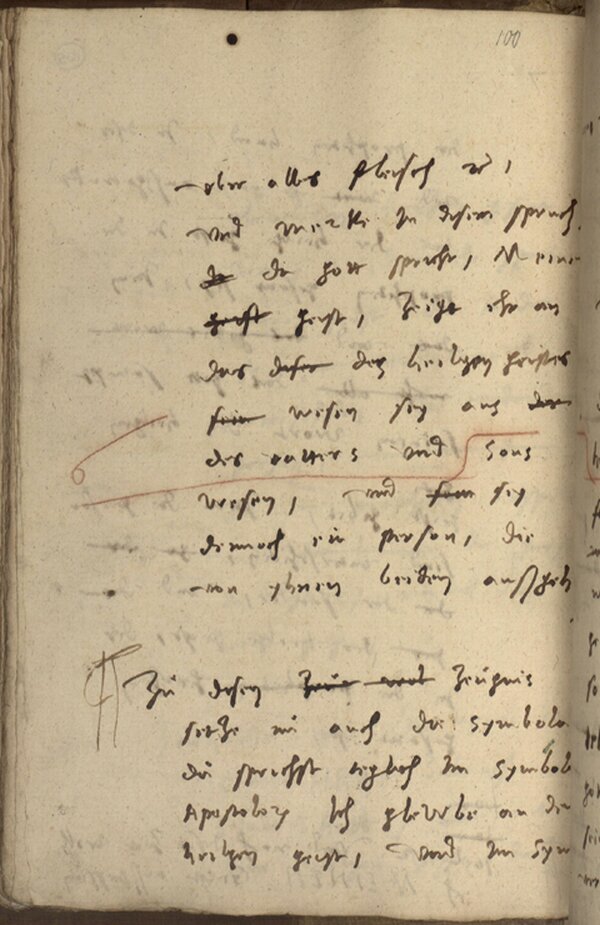 100
vber alles fleisch etc /
vnd mercke In disem spruch
da da gott spricht, Meine
geist geist, zeigt ehr an
das diser des heiligen geistes
sein wesen sey aus des
des vatters vnd Sons
wesen, vnd sein sey
dennoch ein person, die
von yhnen beiden aussgeh
Zu disen zeugnis
setze nu auch die Symbola
da sprichst teglich Im Symbolo
Apostolorum Ich glewbe an den
heiligen geist, vnd Im Sym